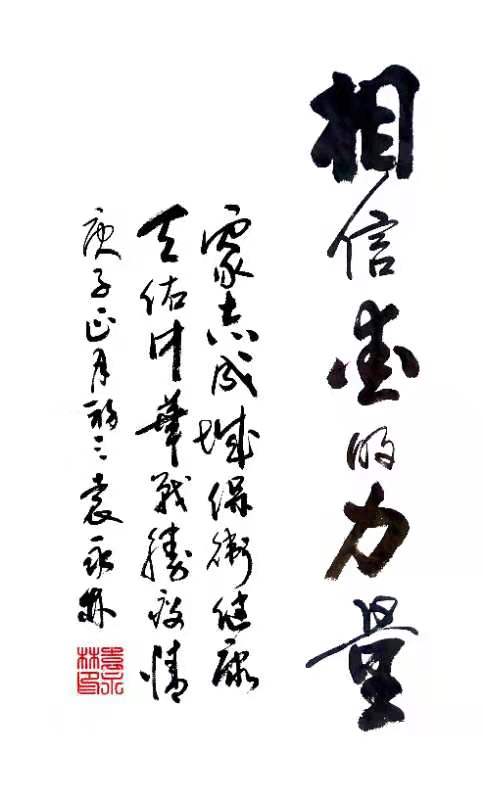 相信愛的力量
眾志成城保衛健康
天佑中華戰勝疫情
庚子正月初三袁永林
袁永林印